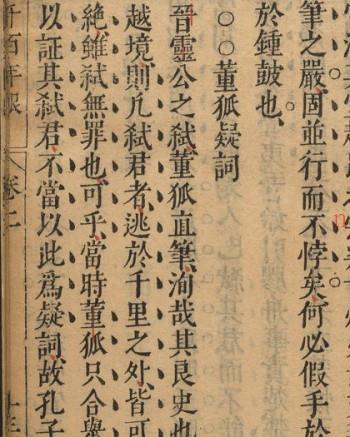 筆之嚴固並行而不悖矣何必假手於
於鍾鼓也
○○董狐疑詞
晉靈公之弑董狐直筆洵哉其良史也
越境則凡弑君者逃於千里之外皆可
絶雖弑無罪也可乎當時董狐只合舉
以証其弑君不當以此爲疑詞故孔子
百年眼
卷二